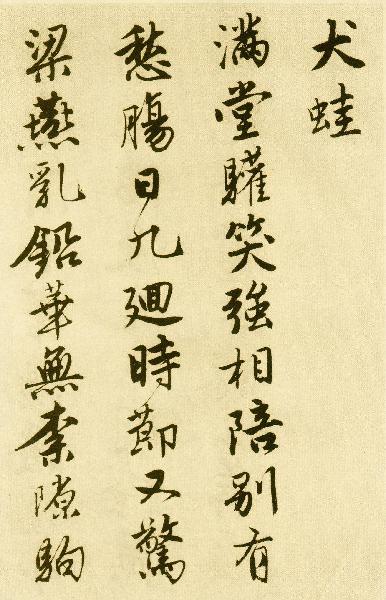 犬蛙
滿堂驩笑強相陪別有
愁腸日九廻時節又驚
梁燕乳鉛華無柰隙駒